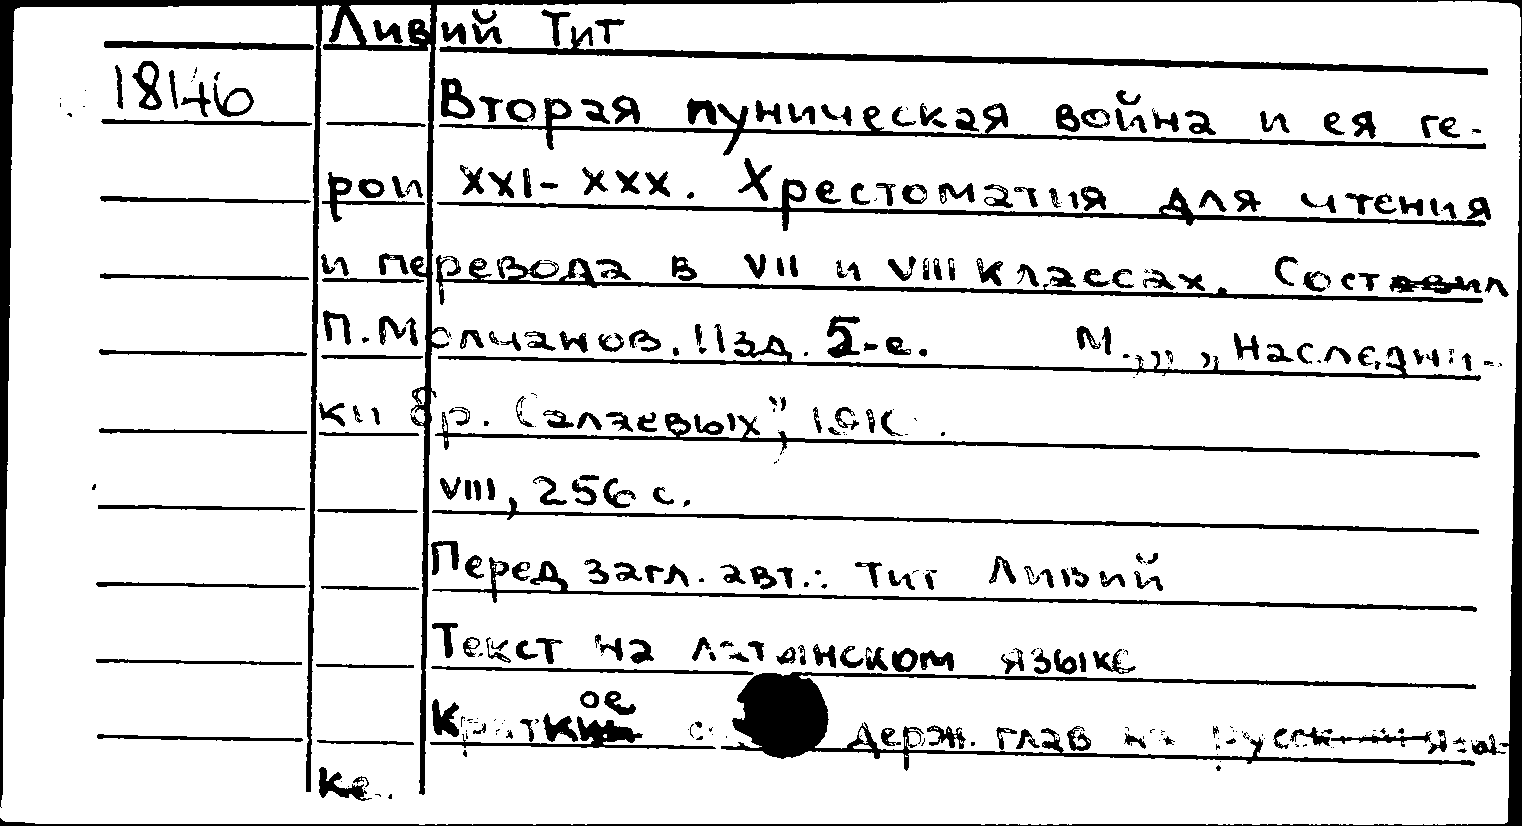 Ливий Тит
18146
Вторая пуническая война и ея ге-
рои XXI-XXX. Хрестоматия для чтения
и перевода в VII и VIII классах. Составил
П. Молчанов. Изд. 5-е. М., „Наследни-
ки бр. Салаевых",
VIII, 256 с.
Перед загл. авт.: Тит Ливий
Текст на латынском языке
Краткое содерж. глав на русск. язы-
ке.